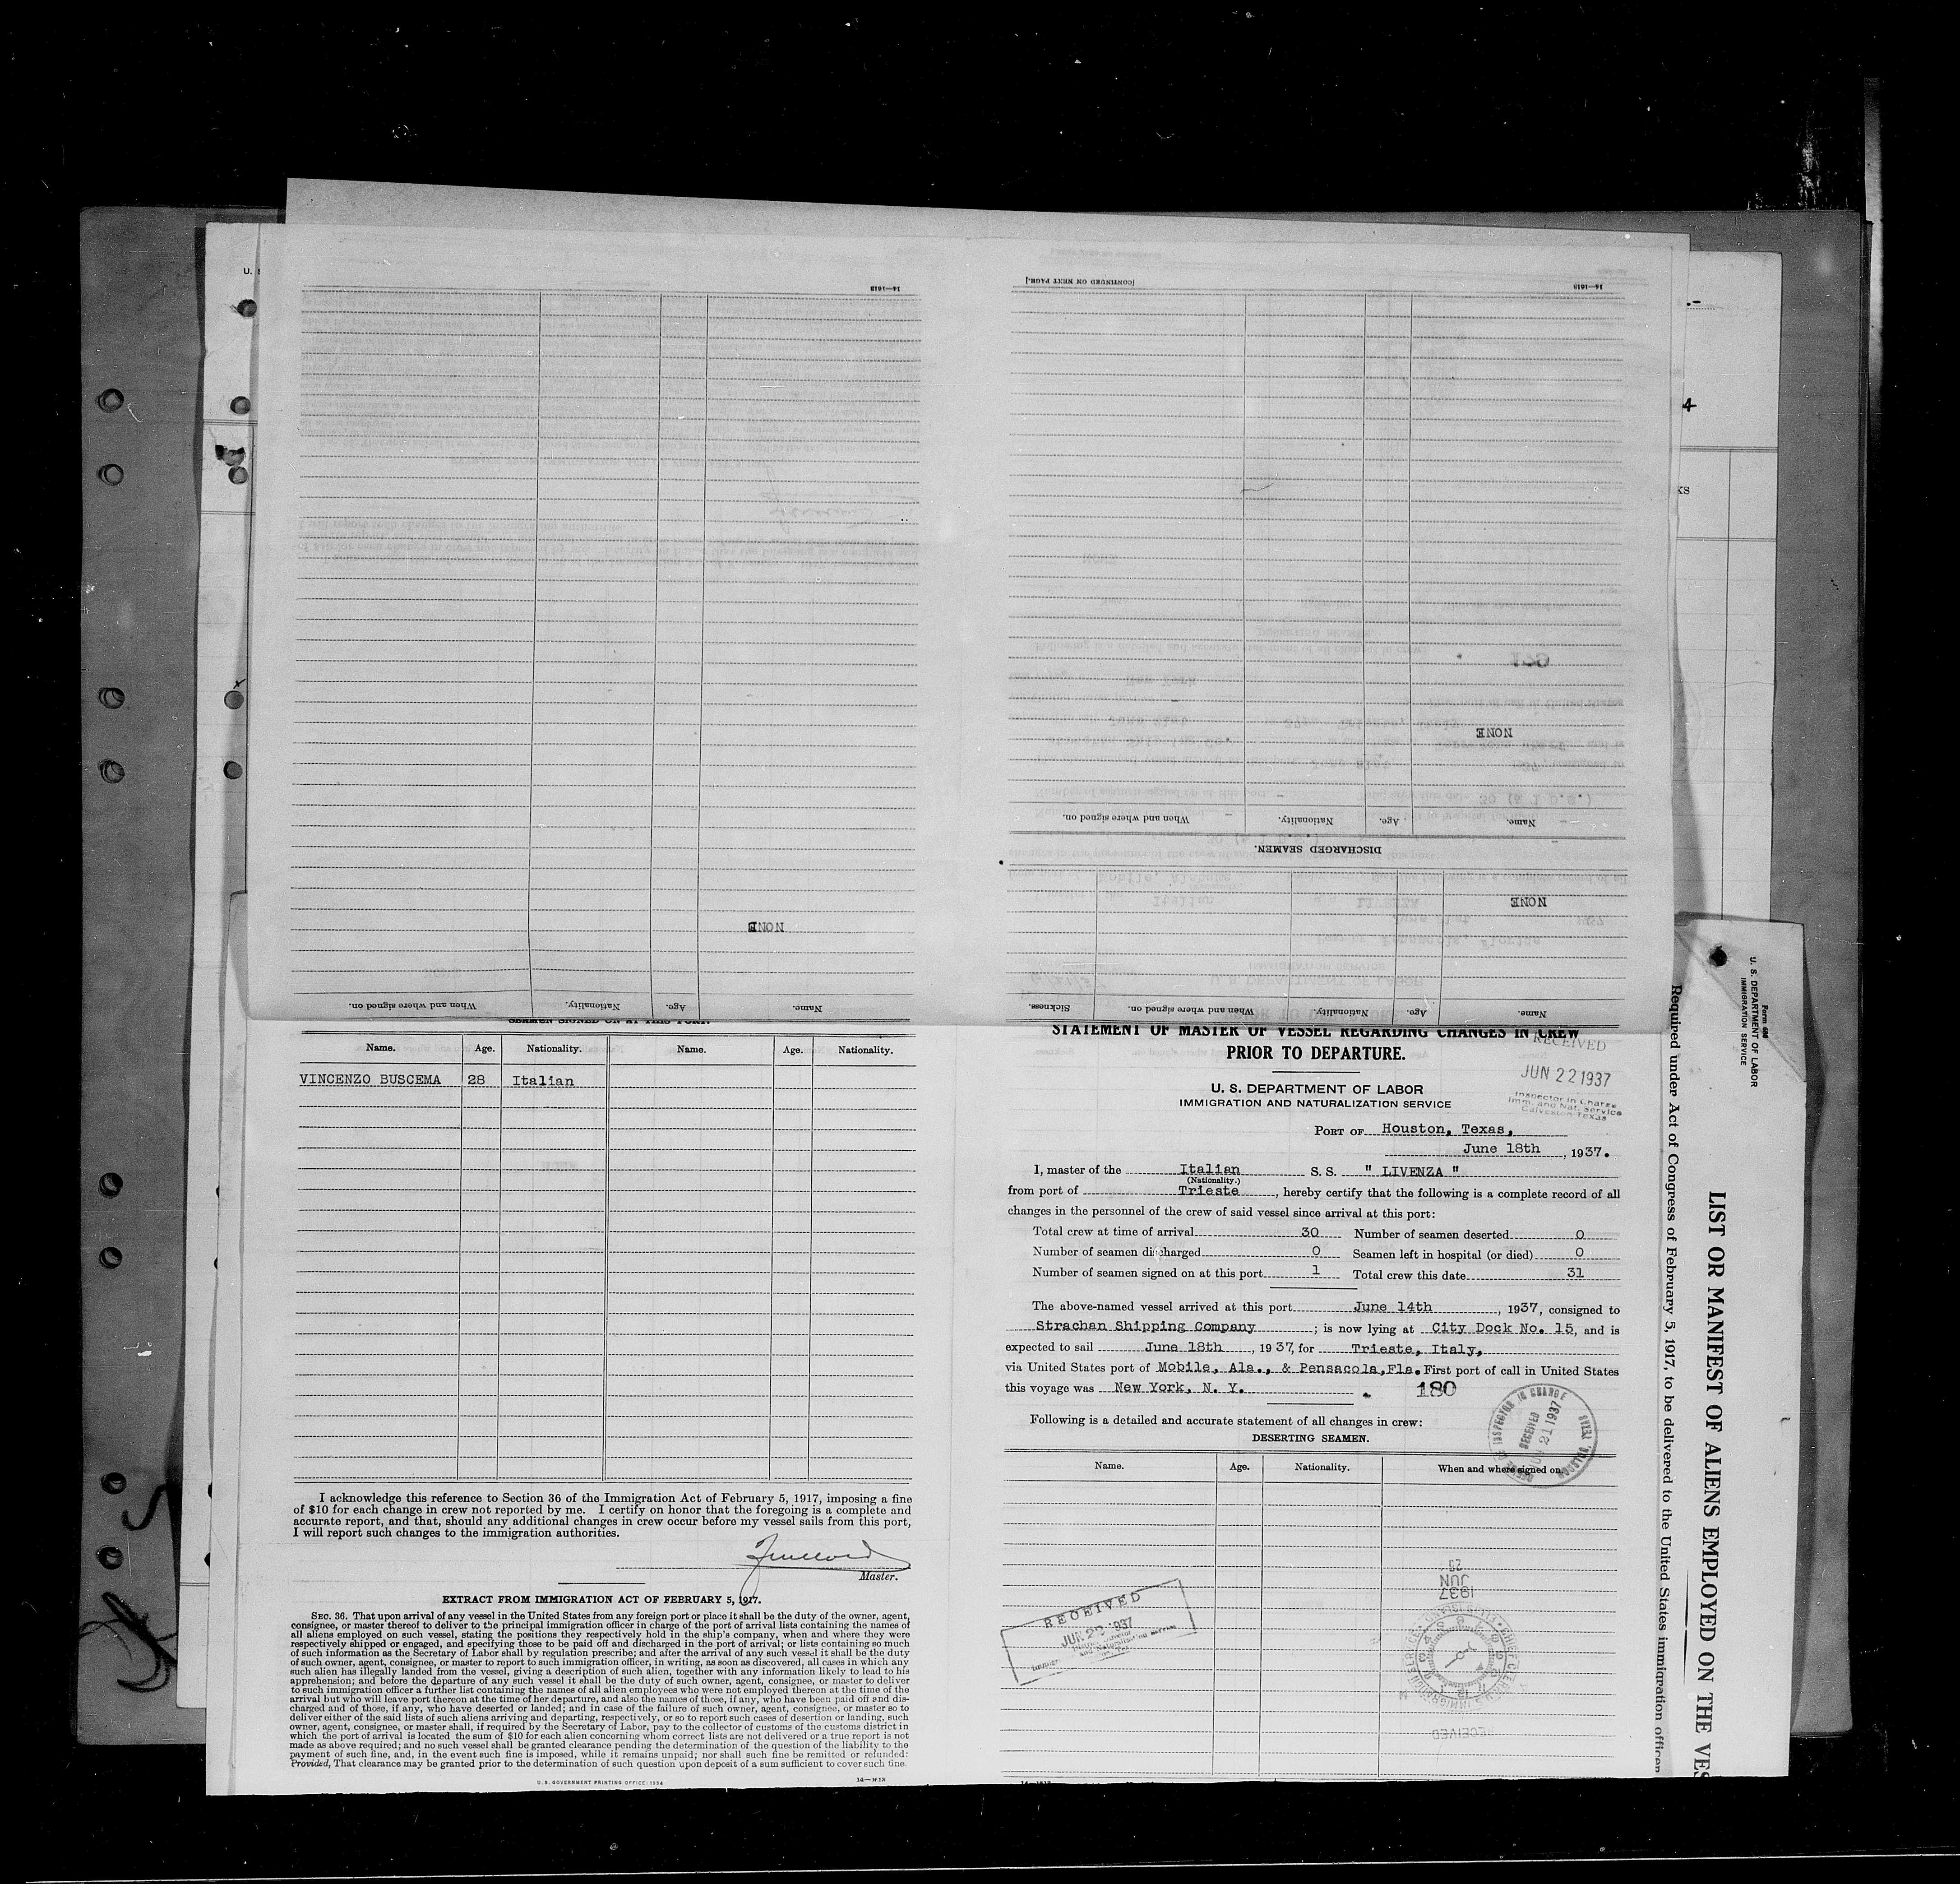 U. S
14—1618
NONE
Name.
Age.
Nationality.
When and where signed on.
[CONTINUED ON NEXT PAGE.]
14—1618
NONE
Name.
Age.
Nationality.
When and where signed on.
DISCHARGED SEAMEN.
NONE
Name.
Age.
Nationality.
When and where signed on.
Sickness.
SEAMEN SIGNED ON AT THIS PORT.
Name. Age. Nationality. Name. Age. Nationality.
VINCENZO BUSCEMA 28 Italian
I acknowledge this reference to Section 36 of the Immigration Act of February 5, 1917, imposing a fine
of $10 for each change in crew not reported by me. I certify on honor that the foregoing is a complete and
accurate report, and that, should any additional changes in crew occur before my vessel sails from this port,
I will report such changes to the immigration authorities.
Master.
EXTRACT FROM IMMIGRATION ACT OF FEBRUARY 5, 1917.
SEC. 36. That upon arrival of any vessel in the United States from any foreign port or place it shall be the duty of the owner, agent,
consignee, or master thereof to deliver to the principal immigration officer in charge of the port of arrival lists containing the names of
all aliens employed on such vessel, stating the positions they respectively hold in the ship's company, when and where they were
respectively shipped or engaged, and specifying those to be paid off and discharged in the port of arrival; or lists containing so much
of such information as the Secretary of Labor shall by regulation prescribe; and after the arrival of any such vessel it shall be the duty
of such owner, agent, consignee, or master to report to such immigration officer, in writing, as soon as discovered, all cases in which any
such alien has illegally landed from the vessel, giving a description of such alien, together with any information likely to lead to his
apprehension; and before the departure of any such vessel it shall be the duty of such owner, agent, consignee, or master to deliver
to such immigration officer a further list containing the names of all alien employees who were not employed thereon at the time of the
arrival but who will leave port thereon at the time of her departure, and also the names of those, if any, who have been paid off and dis-
charged and of those, if any, who have deserted or landed; and in case of the failure of such owner, agent, consignee, or master so to
deliver either of the said lists of such aliens arriving and departing, respectively, or so to report such cases of desertion or landing, such
owner, agent, consignee, or master shall, if required by the Secretary of Labor, pay to the collector of customs of the customs district in
which the port of arrival is located the sum of $10 for each alien concerning whom correct lists are not delivered or a true report is not
made as above required; and no such vessel shall be granted clearance pending the determination of the question of the liability to the
payment of such fine, and, in the event such fine is imposed, while it remains unpaid; nor shall such fine be remitted or refunded:
Provided, That clearance may be granted prior to the determination of such question upon deposit of a sum sufficient to cover such fine.
U. S. GOVERNMENT PRINTING OFFICE: 1934
STATEMENT OF MASTER OF VESSEL REGARDING CHANGES IN CREW
PRIOR TO DEPARTURE.
RECEIVED
JUN 22 1937
Inspector in Charge
Imm. and Nat. Service
Galveston Texas
U. S. DEPARTMENT OF LABOR
IMMIGRATION AND NATURALIZATION SERVICE
PORT OF Houston, Texas,
June 18th, 1937.
I, master of the Italian S. S. " LIVENZA "
(Nationality.)
from port of Trieste, hereby certify that the following is a complete record of all
changes in the personnel of the crew of said vessel since arrival at this port:
Total crew at time of arrival 30 Number of seamen deserted 0
Number of seamen discharged 0 Seamen left in hospital (or died) 0
Number of seamen signed on at this port 1 Total crew this date 31
The above-named vessel arrived at this port June 14th, 1937, consigned to
Strachan Shipping Company; is now lying at City Dock No. 15, and is
expected to sail June 18th, 1937, for Trieste, Italy,
via United States port of Mobile, Ala., & Pensacola, Fla. First port of call in United States
this voyage was New York, N. Y.
180
Following is a detailed and accurate statement of all changes in crew:
DESERTING SEAMEN.
Name. Age. Nationality. When and where signed on.
RECEIVED
21 1937
RECEIVED
JUN 22 1937
1937
JUN
RECEIVED
4
Form 680
U. S. DEPARTMENT OF LABOR
IMMIGRATION SERVICE
LIST OR MANIFEST OF ALIENS EMPLOYED ON THE VES
Required under Act of Congress of February 5, 1917, to be delivered to the United States immigration officer